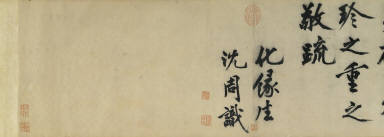 珍之重之
敬疏
化緣生
沈周識